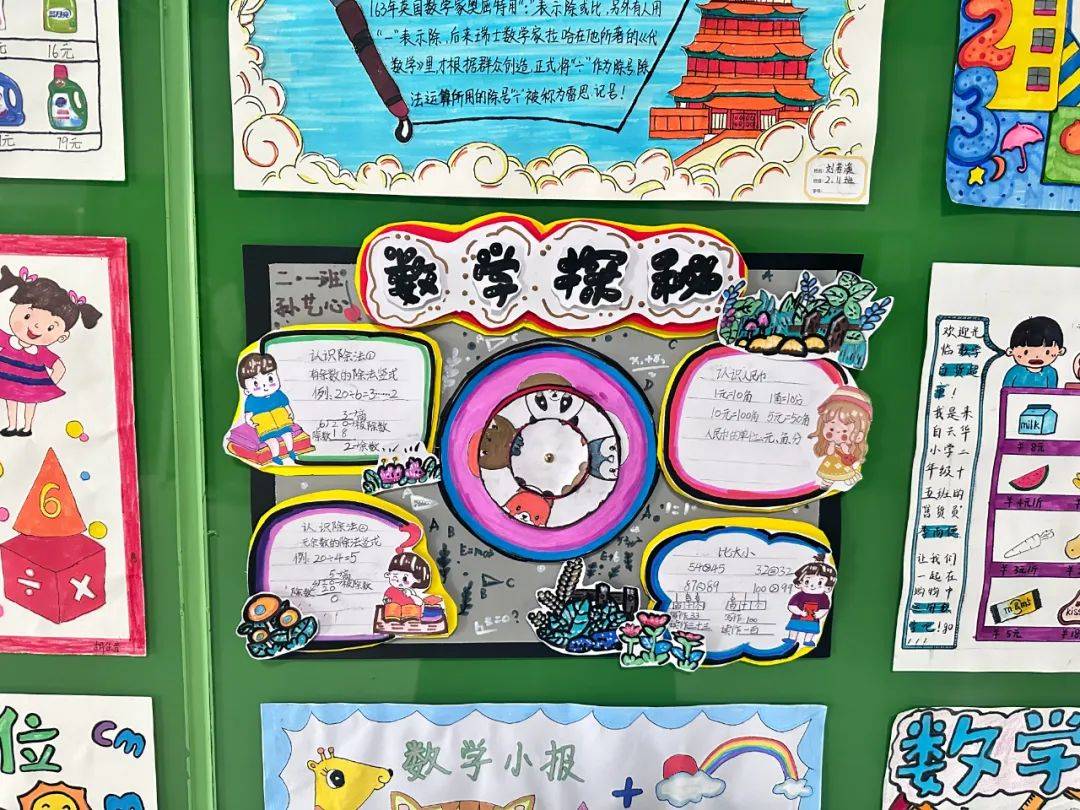 163年英国数学家奥屈特用":"表示除或比,另外有人用
"—"表示除,后来瑞士数学家拉哈在他所著的《代
数学》里,才根据群众创造,正式将"÷"作为除号.除
法运算所用的除号"÷"被称为雷恩.记号!
刘若溪
2.11班
16元
19元
2
3
数学探秘
二·一班
孙艺心
认识除法①
有余数的除法竖式
例:20÷6=3……2
3→商
6 20→被除数
除数 18
2→余数
认识人民币
1元=10角 1角=10分
10元=100角 5元=50角
人民币的单位:元,角,分
认识除法②
无余数的除法竖式
例:20÷4=5
5→商
被除数
除数
20
0
比大小
54 45 32 32
87 89 100 99
写作:33 写作:100
读作:三十三 读作:一百
6
÷ ×
欢迎光
临数学
百货超
市!
我是来
自云华
小学二
年级十
五班的
售货员
让我们
一起在
购物中
milk
¥8元
¥4元/斤
¥3元/斤
m&ms
¥5元
位
cm
数学小报
+
数学